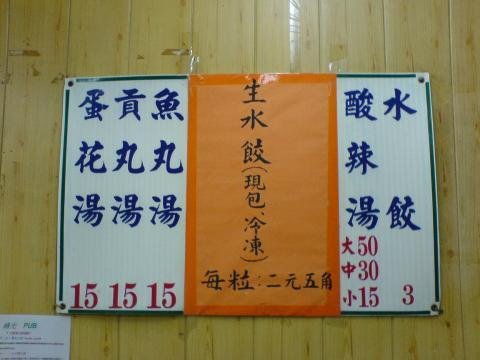 水餃 3
酸辣湯 大50 中30 小15
生水餃(現包、冷凍)
每粒:二元五角
魚丸湯 15
貢丸湯 15
蛋花湯 15
綠光 PUB